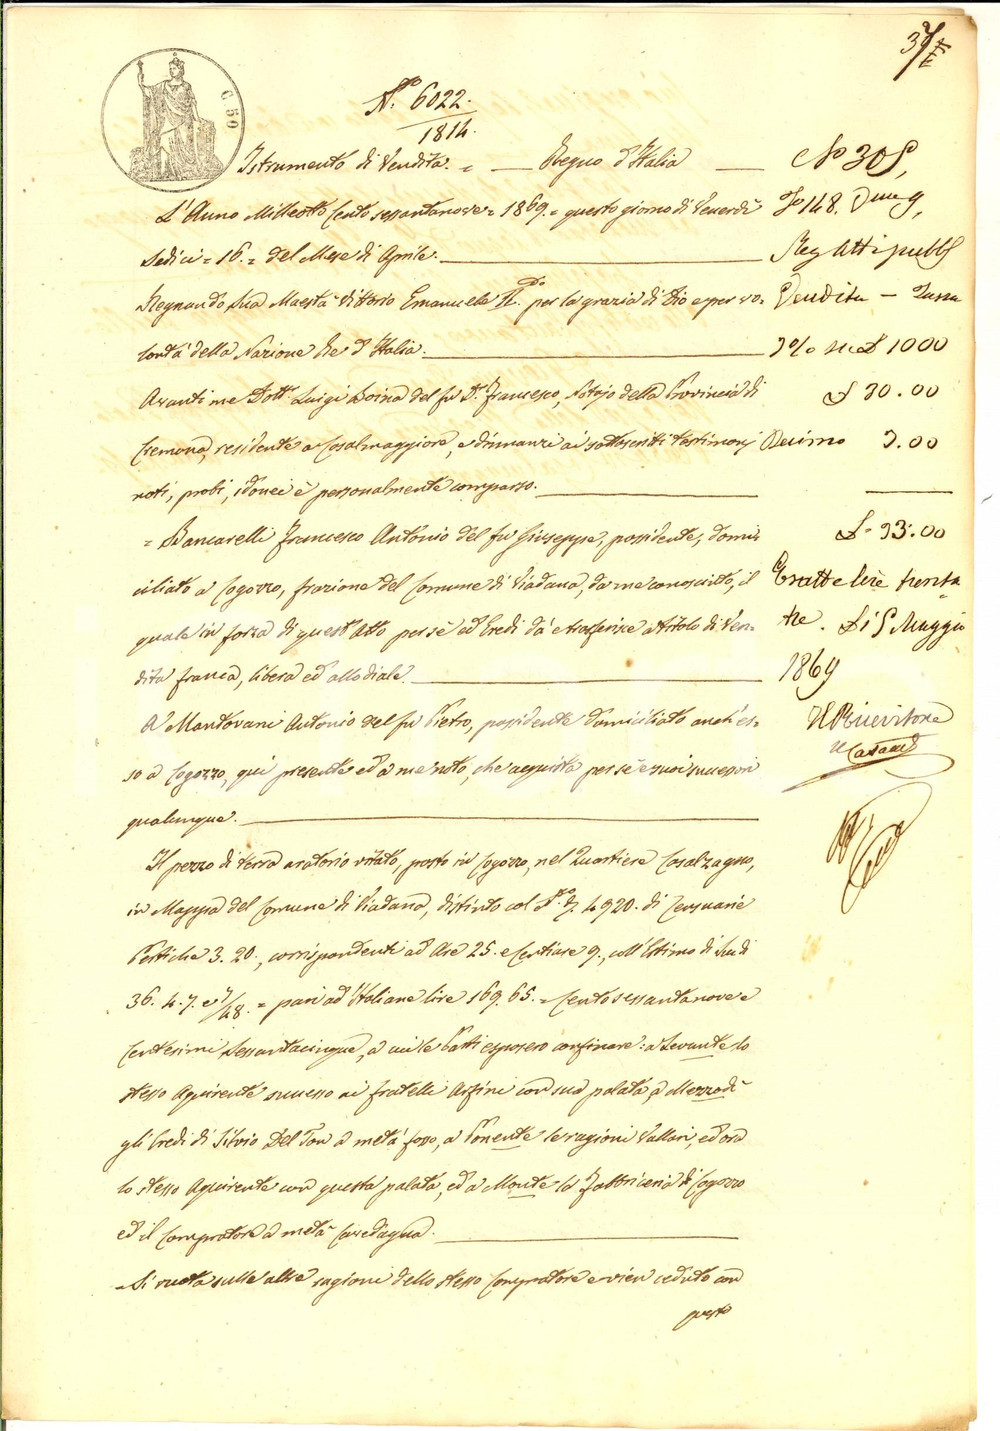 C. 50
N.º 6022.
1814.
Istrumento di Vendita. = Regno d'Italia
L'Anno Milleotto Cento sessantanove = 1869. = questo giorno di Venerdì
Sedici = 16. = del Mese di Aprile.
Regnando Sua Maestà Vittorio Emanuele II.do per la grazia di Dio e per vo-
lontà della Nazione Re d'Italia.
Avanti me Dott.r Luigi Boina del fu D.r Francesco, Notajo della Provincia di
Cremona, residente a Casalmaggiore, e dinnanzi ai sottoscritti testimonj
noti, probi, idonei è personalmente comparso.
= Bancarelli Francesco Antonio del fu Giuseppe, possidente, domi-
ciliato a Cogozzo, frazione del Comune di Viadana, da me conosciuto, il
quale in forza di quest'Atto per sè ed Eredi dà e trasferisce a titolo di Ven-
dita franca, libera ed allodiale.
A Mantovani Antonio del fu Pietro, possidente domiciliato anch'es-
so a Cogozzo, qui presente ed a me noto, che acquista per sè e suoi successori
qualunque.
Il pezzo di terra aratorio vitato, posto in Cogozzo, nel Quartiere Casalzagno,
in Mappa del Comune di Viadana, distinto col 4920. di Censuarie
Pertiche 3. 20., corrispondenti ad Are 25. e Centiare 9., coll'Estimo di Scudi
36. 4. 7. e 7/48. = pari ad Italiane lire 169. 65. = Cento sessantanove e
Centesimi Sessantacinque, a cui le Parti esposero confinare: a Levante lo
stesso Aquirente successo ai fratelli Azzini con sua palata, a Mezzodì
gli Eredi di Silvio Del Ton a metà fosso, a Ponente le ragioni Vallari, ed ora
lo stesso Aquirente con questa palata, ed a Monte la Fabbriceria di Cogozzo
ed il Compratore a metà Cavedagna.
Si vuota sulle altre ragioni dello stesso Compratore e vien ceduto con
questo
N.º 305,
Fo 148.
Reg Atti pubb
Vendita — Tassa
3% su £ 1000
£ 30.00
Decimo 3.00
£ 33.00
Esatte lire trenta
tre. Li 5 Maggio
1869
Il Ricevitore